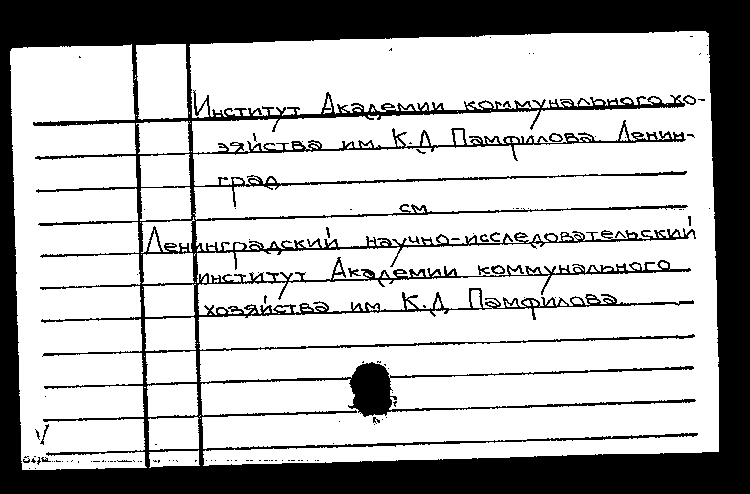 Институт Академии коммунального хо-
зяйства им. К.Д. Памфилова. Ленин-
град
см.
Ленинградский научно-исследовательский
институт Академии коммунального
хозяйства им. К.Д. Памфилова.